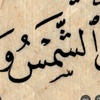 الشَّمْسُ وَ